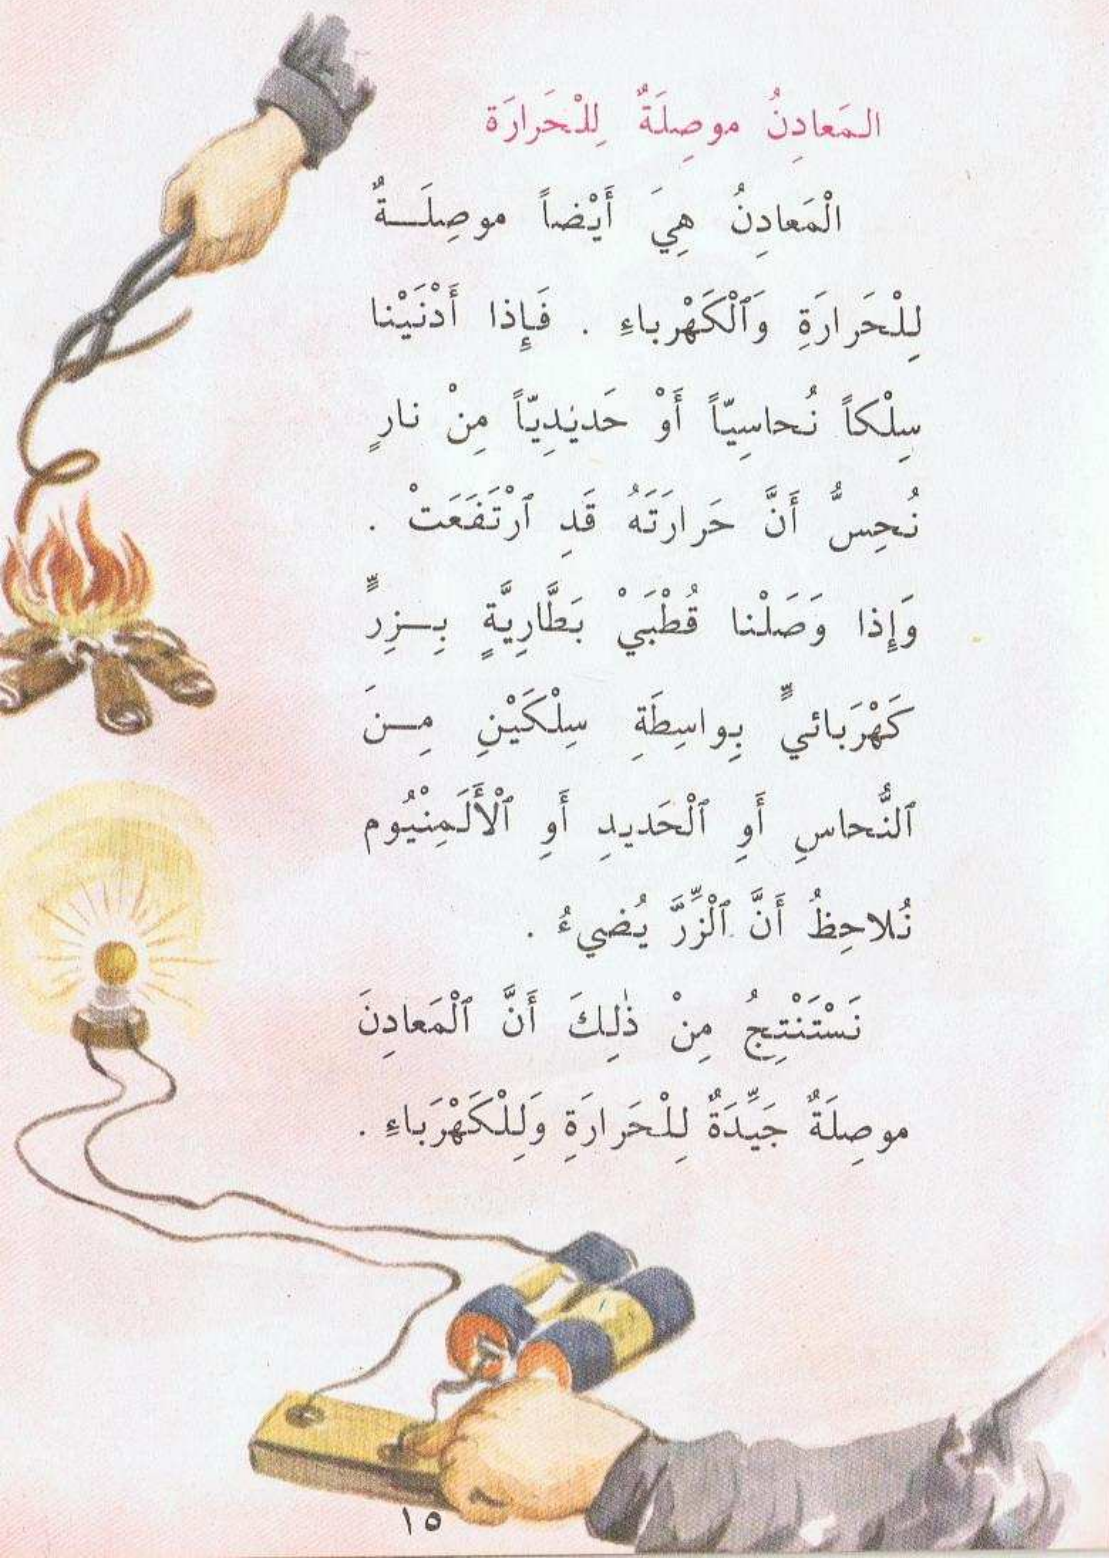 المَعادِنُ موصِلَةٌ لِلْحَرارَة
الْمَعادِنُ هِيَ أَيْضاً موصِلَــةٌ
لِلْحَرارَةِ وَٱلْكَهْرباءِ . فَإِذا أَدْنَيْنا
سِلْكاً نُحاسِيّاً أَوْ حَديدِيّاً مِنْ نارٍ
نُحِسُّ أَنَّ حَرارَتَهُ قَدِ ٱرْتَفَعَتْ .
وَإِذا وَصَلْنا قُطْبَيْ بَطَّارِيَّةٍ بِــزِرٍّ
كَهْرَبائيٍّ بِواسِطَةِ سِلْكَيْنِ مِــنَ
ٱلنُّحاسِ أَوِ ٱلْحَديدِ أَوِ ٱلْأَلَمِنْيُوم
نُلاحِظُ أَنَّ ٱلْزِّرَّ يُضيءُ .
نَسْتَنْتِجُ مِنْ ذٰلِكَ أَنَّ ٱلْمَعادِنَ
موصِلَةٌ جَيِّدَةٌ لِلْحَرارَةِ وَلِلْكَهْرَباءِ .
١٥